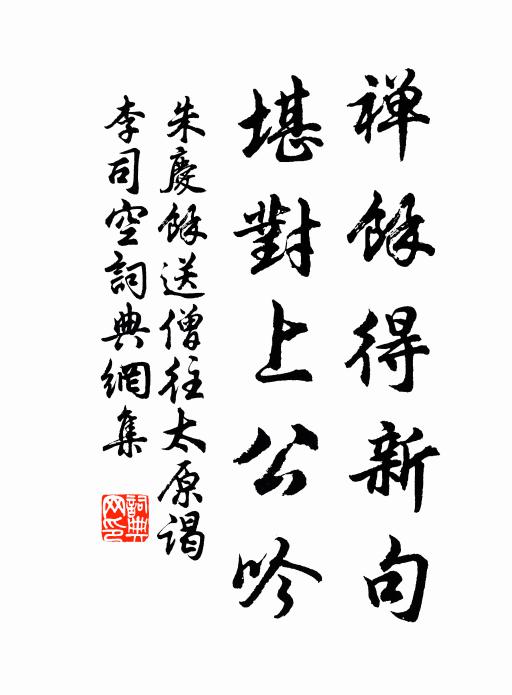 禅餘得新句
堪對上公吟
朱慶餘送僧往太原谒
李司空詞典網集
詞典
网印